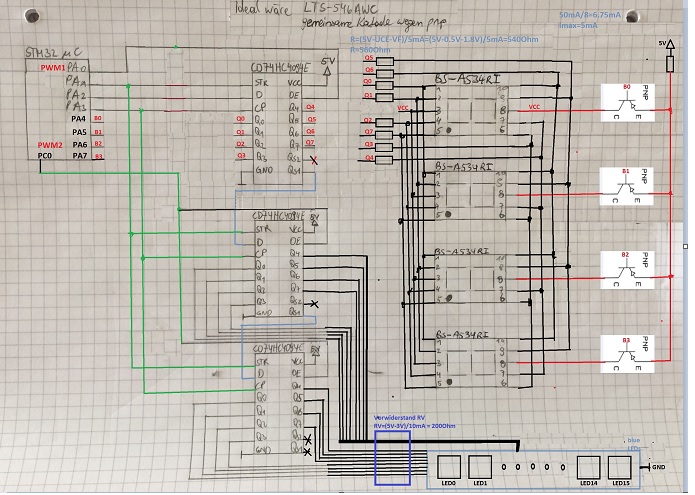 Ideal wäre LTS-546AWC
gemeinsame Katode wegen pnp
50mA/8=6,75mA
Imax=5mA
R=(5V-UCE-VF)/5mA=(5V-0.5V-1.8V)/5mA=540Ohm
R=560Ohm
STM32 µC
PWM1 PA0
PA1
PA2
PA3
PA4 B0
PA5 B1
PWM2 PA6 B2
PC0 PA7 B3
CD74HC4094E
5V
STR VCC
D OE
CP Q4 Q4
Q0 Q0 Q5 Q5
Q1 Q1 Q6 Q6
Q2 Q2 Q7 Q7
Q3 Q3 QS2
GND QS1
CD74HC4094E
5V
STR VCC
D OE
CP Q4
Q0 Q5
Q1 Q6
Q2 Q7
Q3 QS2
GND QS1
CD74HC4094E
5V
STR VCC
D OE
CP Q4
Q0 Q5
Q1 Q6
Q2 Q7
GND
Q5
Q6
Q0
Q1
VCC
Q2
Q7
Q3
Q4
BS-A534RI
1 10
2 9
3 8 VCC
4 7
5 6
BS-A534RI
BS-A534RI
BS-A534RI
5V
B0
PNP
C E
B1
PNP
C E
B2
PNP
C E
B3
PNP
C E
Vorwiderstand RV
RV=(5V-3V)/10mA = 200Ohm
blue
LEDs
LED0 LED1 0 0 0 0 0 LED14 LED15 GND